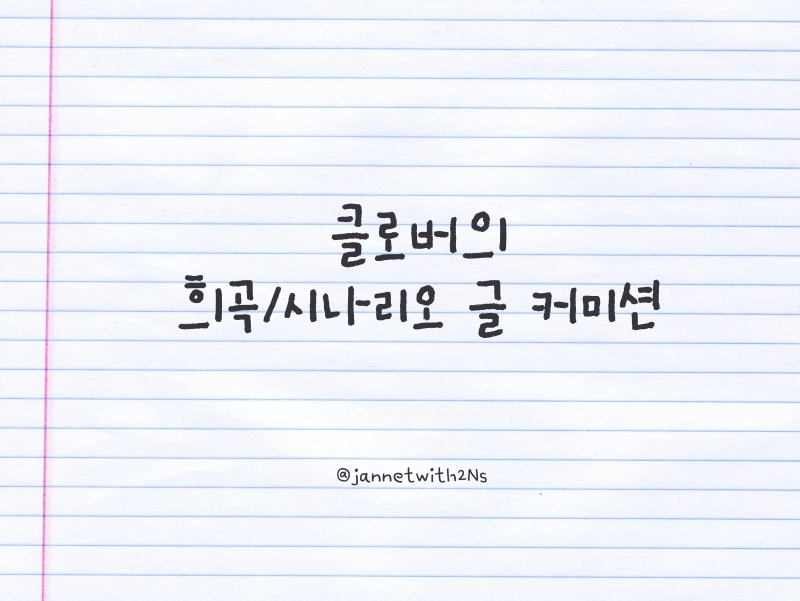 클로버의
희곡/시나리오 글 커미션
@jannetwith2Ns